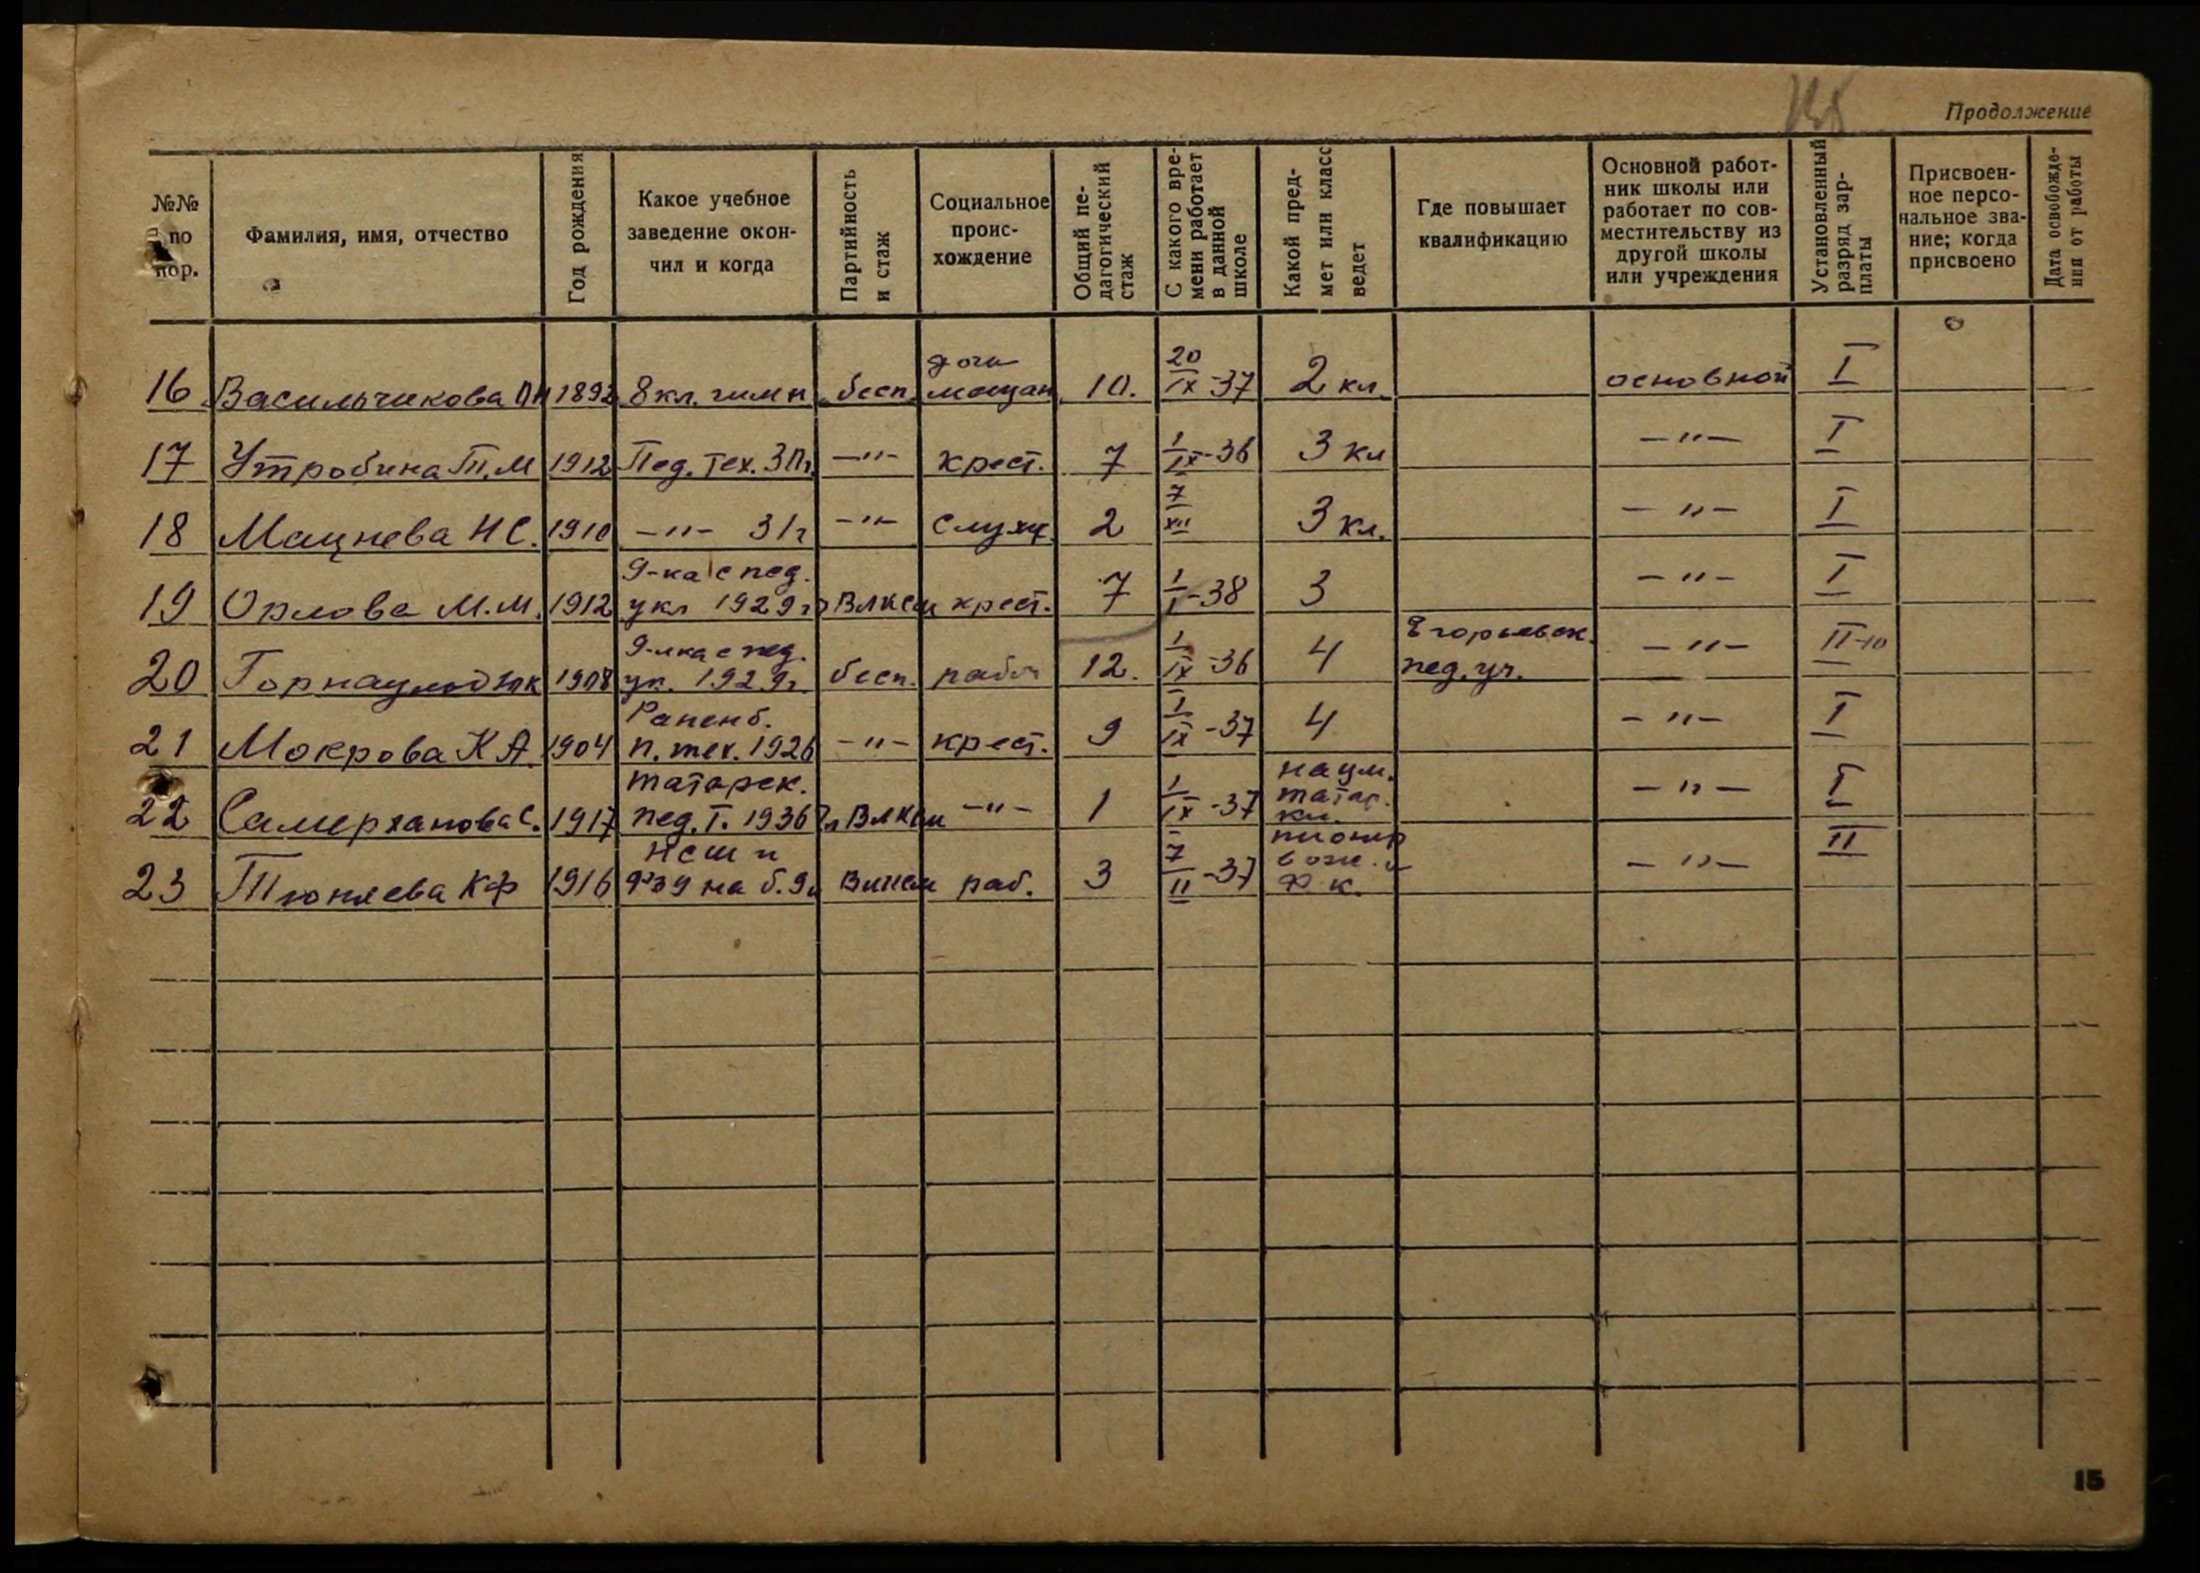 Продолжение
№№ по пор. Фамилия, имя, отчество Год рождения Какое учебное заведение окончил и когда Партийность и стаж Социальное происхождение Общий педагогический стаж С какого времени работает в данной школе Какой предмет или класс ведет Где повышает квалификацию Основной работник школы или работает по совместительству из другой школы или учреждения Установленный разряд зарплаты Присвоенное персональное звание; когда присвоено Дата освобождения от работы
16 Васильчикова 1892 8 кл. гимн бесп. дочь мещан 10. 20/IX-37 2 кл. основной I
17 Утробина Т.М 1912 Пед. тех. -"- крест. 7 1/IX-36 3 кл -"- I
18 Мацнева Н С. 1910 -"- 31г -"- служ. 2 7/XII 3 кл. -"- I
19 Орлова М.М. 1912 9-ка с пед. укл 1929г ВЛКСМ крест. 7 1/I-38 3 -"- I
20 1908 9-лка с пед. ук. 1929г. бесп. рабоч 12. 1/IX-36 4 Егорьевск. пед. уч. -"- II-10
21 Мокрова К А. 1904 Раненб. п. тех. 1926 -"- крест. 9 1/IX-37 4 -"- I
22 Самерханова С. 1917 татарск. пед. т. 1936 ВЛКСМ -"- 1 1/IX-37 татар. кл. -"- I
23 Тюняева К Ф 1916 НСШ и ВЛКСМ раб. 3 7/II-37 пионер вож. и Ф. к. -"- II
15